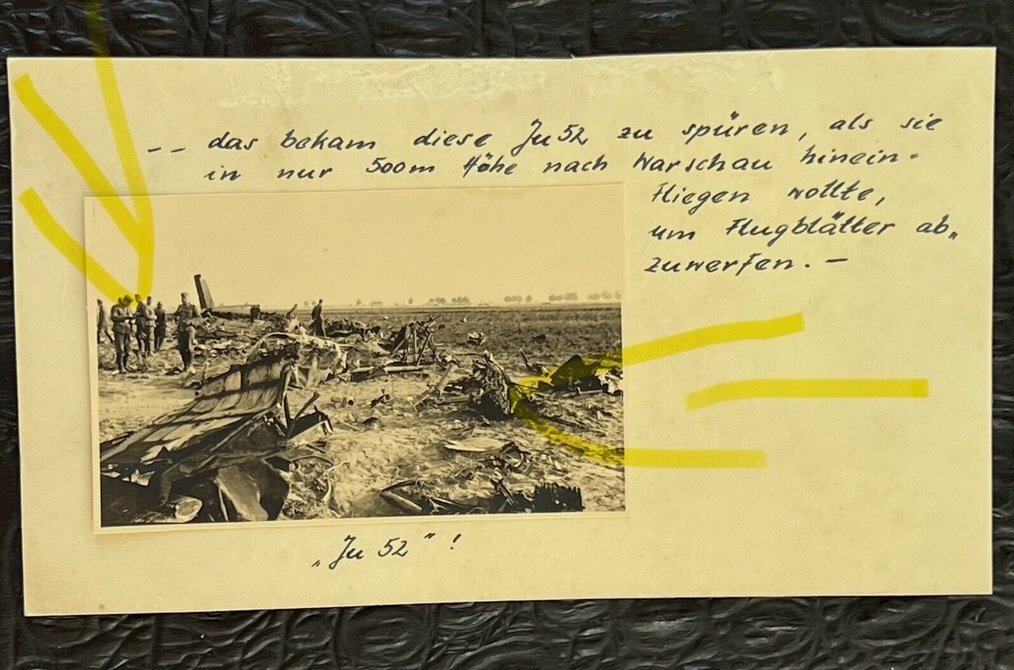 -- das bekam diese Ju 52 zu spüren, als sie
in nur 500m Höhe nach Warschau hinein-
fliegen wollte,
um Flugblätter ab„
zuwerfen. —
„Ju 52" !